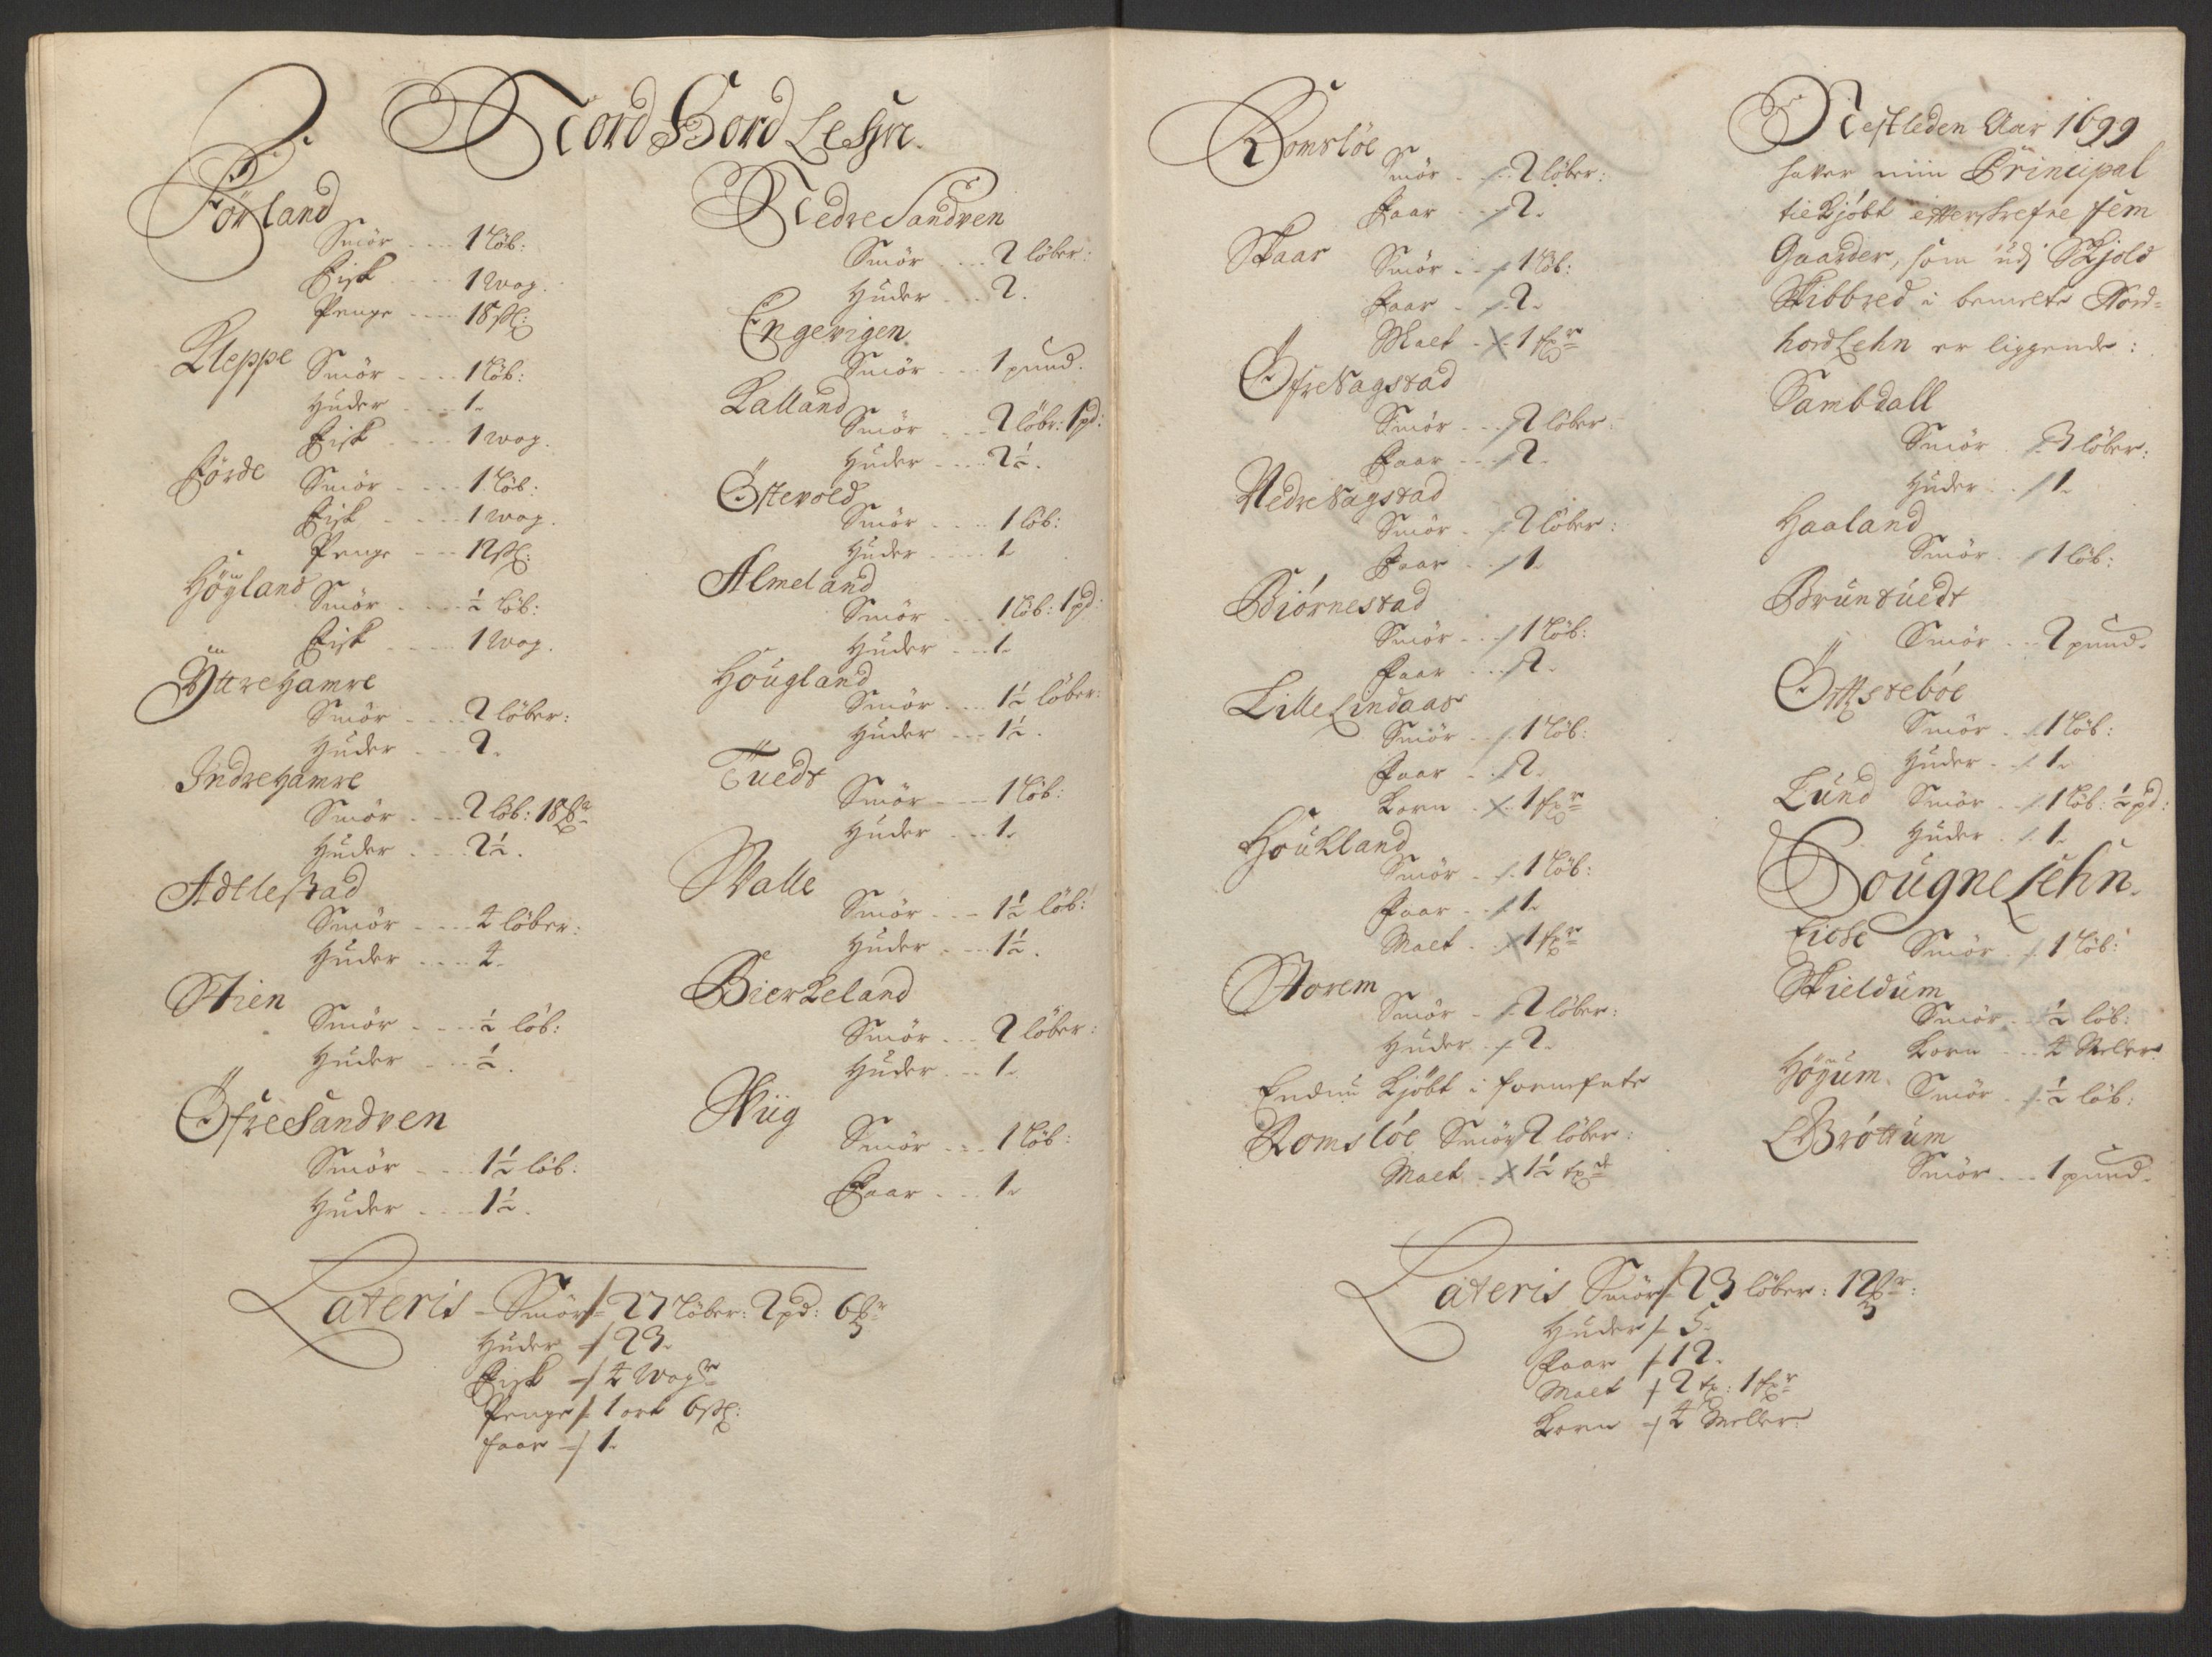 Nord Hord Lehn
Förland
Smör - - - 1 löb:
Fisk - - - 1 wog.
Penge - - - 18 sk:
Kleppe Smör - - - 1 löb:
Huder - - - 1.
Fisk - - - 1 wog.
Förde Smör - - - 1 löb:
Fisk - - - 1 wog.
Penge - - - 12 sk:
Högland Smör - - - ½ löb:
Fisk - - - 1 wog.
Yttre Hamre
Smör - - - 2 löber:
Huder - - - 2.
Indre Hamre
Smör - - - 2 löb: 18
Huder - - - 2½.
Adtlestad
Smör - - - 4 löber:
Huder - - - 4.
Stien
Smör - - - ½ löb:
Huder - - - ½.
Öfre Sandven
Smör - - - 1½ löb:
Huder - - - 1½.
Nedre Sandven
Smör - - - 2 löber:
Huder - - - 2.
Engevigen
Smör - - - 1 pund.
Kalland
Smör - - - 2 löbr: 1 pd:
Huder - - - 2½.
Östevold
Smör - - - 1 löb:
Huder - - - 1
Almeland
Smör - - - 1 löb: 1 pd:
Huder - - - 1.
Höugland
Smör - - - 1½ löber:
Huder - - - 1½.
Tuedt
Smör - - - 1 löb:
Huder - - - 1.
Walle
Smör - - - 1½ löb:
Huder - - - 1½.
Bierkeland
Smör - - - 2 löber:
Huder - - - 1.
Wiig
Smör - - - 1 löb:
Faar - - - 1.
Lateris - Smör 27 löber: 2 pd: 6
Huder - 23.
Fisk - 4 wogr
Penge 1 ort 6 sk:
faar - 1.
Romslöe
Smör - - 2 löber:
Faar - - 2.
Skaar Smör - - 1 löb:
Faar - 2.
Malt - 1
Öfre Vagstad
Smör - - - 2 löber:
Faar - - - 2.
Nedre Vagstad
Smör - 2 löber:
Faar - - 1.
Biörnestad
Smör - - 1 löb:
Faar - - - 2.
Lille Lindaas
Smör - - 1 löb:
Faar - - 2.
Korn - 1
Höukland
Smör - - 1 löb:
Faar - - 1.
Malt - 1
Storem
Smör - 2 löber:
Huder - 2.
Endnu Kjöbt i fornefnte
Romslöe Smör 2 löber:
Malt - 1½
Nestleden Aar 1699
haver min Principal
tiekjöbt efterskrefne fem
Gaarder, som udj Skjold
Skibbred i bemelte Nord-
hordLehn er liggende:
Sambdall
Smör - 3 löber:
Huder - 1.
Haaland
Smör - 1 löb:
Bruntuedt
Smör - - 2 pund.
Öttstebóe
Smör - - 1 löb:
Huder - 1.
Lund Smör - - 1 löb: ½ pd:
Huder - 1.
Sougne Lehn.
Smör - 1 löb:
Skieldum
Smör - - ½ löb:
Korn - - - 4 Meller
Högum Smör - ½ löb:
Bróttum
Smör - - - 1 pund.
Lateris Smör 23 löber: 12
Huder 5.
Faar 12.
Malt 2 1
Korn - 4 Meller